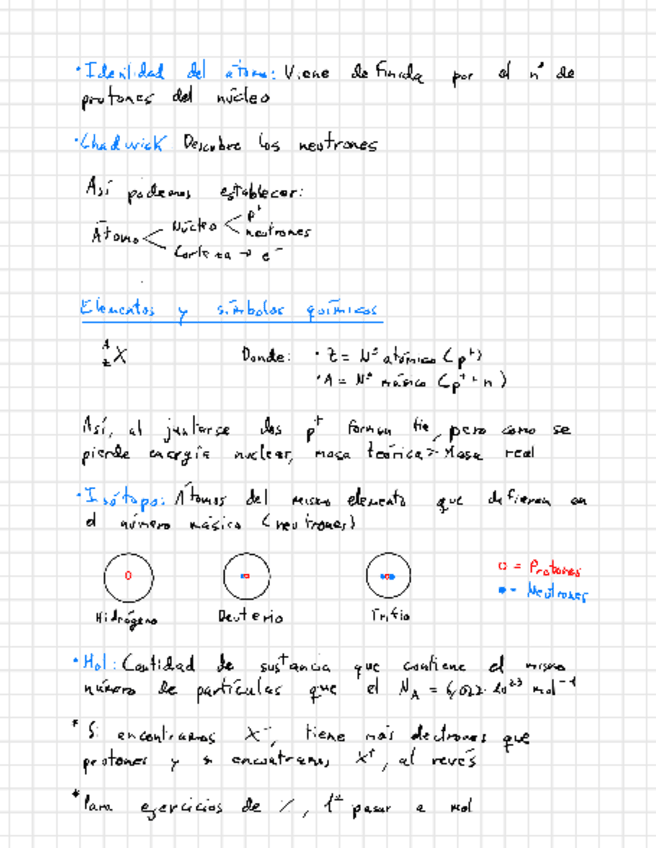 · Identidad del átomo: Viene definida por el nº de
protones del núcleo
· Chadwick Descubre los neutrones
Así podemos establecer:
Átomo < Núcleo < p⁺
neutrones
Corteza → e⁻
Elementos y símbolos químicos
ᴬ_Z X Donde: · Z = Nº atómico (p⁺)
· A = Nº másico (p⁺ + n)
Así, al juntarse dos p⁺ forman He, pero como se
pierde energía nuclear, masa teórica > Masa real
· Isótopo: Átomos del mismo elemento que difieren en
el número másico (neutrones)
o = Protones
• = Neutrones
Hidrógeno Deuterio Tritio
· Mol: Cantidad de sustancia que contiene el mismo
número de partículas que el N_A = 6,022·10²³ mol⁻¹
* Si encontramos X⁻, tiene más electrones que
protones y si encontramos X⁺, al revés
* Para ejercicios de %, 1º pasar a mol